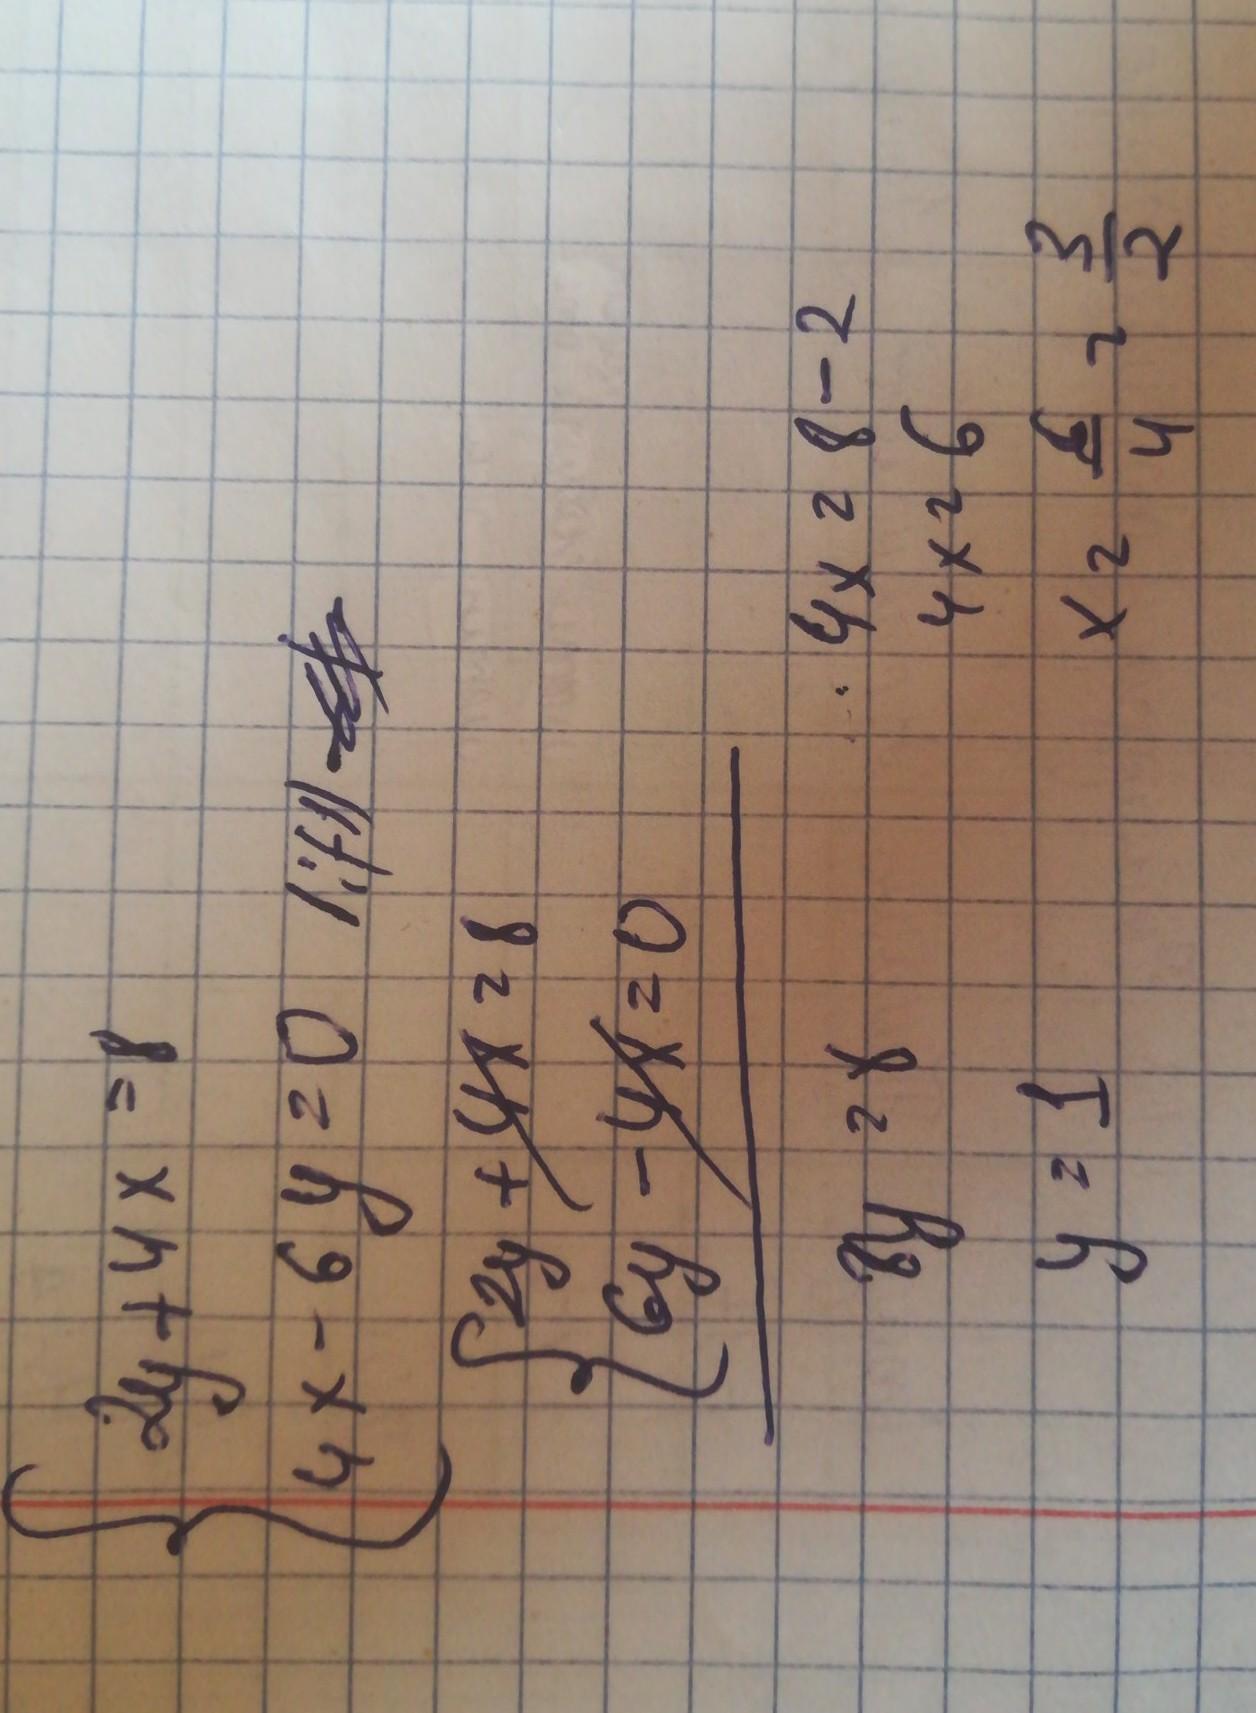 2y + 4x = 8
4x - 6y = 0 |:(-1)
2y + 4x = 8
6y - 4x = 0
8y = 8
y = 1
4x = 8 - 2
4x = 6
x = 6/4 = 3/2